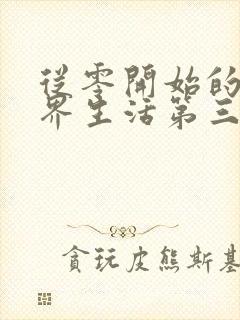 從零開始的
界生活第三
貪玩皮熊斯基